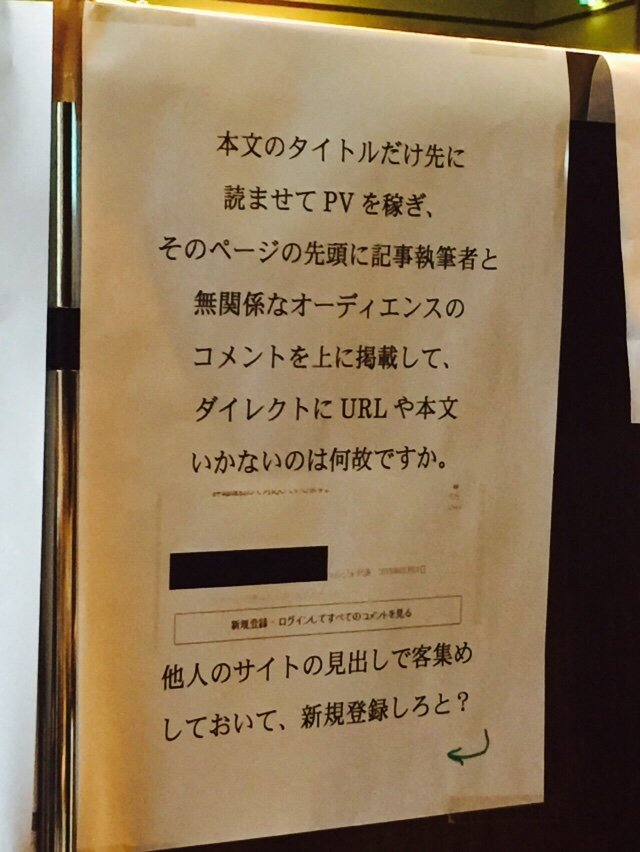 本文のタイトルだけ先に
読ませて PV を稼ぎ、
そのページの先頭に記事執筆者と
無関係なオーディエンスの
コメントを上に掲載して、
ダイレクトに URL や本文
いかないのは何故ですか。
新規登録・ログインしてすべてのコメントを見る
他人のサイトの見出しで客集め
しておいて、新規登録しろと？